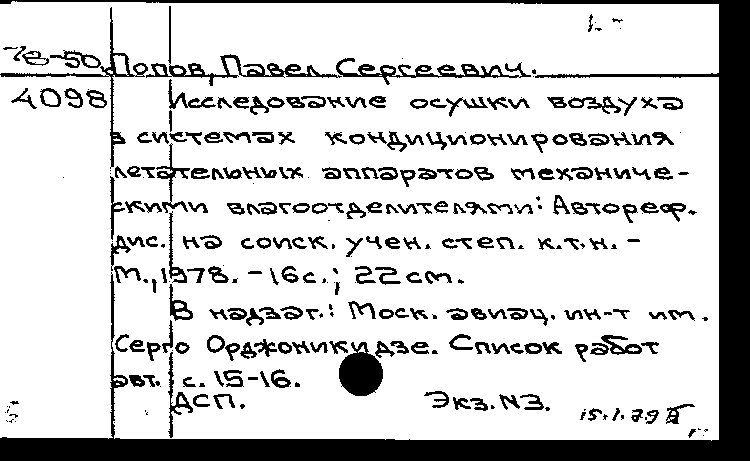 78-50. Попов, Павел Сергеевич.
4098 Исследование осушки воздуха
в системах кондиционирования
летательных аппаратов механиче-
скими влагоотделителями: Автореф.
дис. на соиск. учен. степ. к.т.н. -
М., 1978. - 16 с.; 22 см.
В надзаг.: Моск. авиац. ин-т им.
Серго Орджоникидзе. Список работ
авт. с. 15-16.
ДСП. Экз. N3. 15.1.79